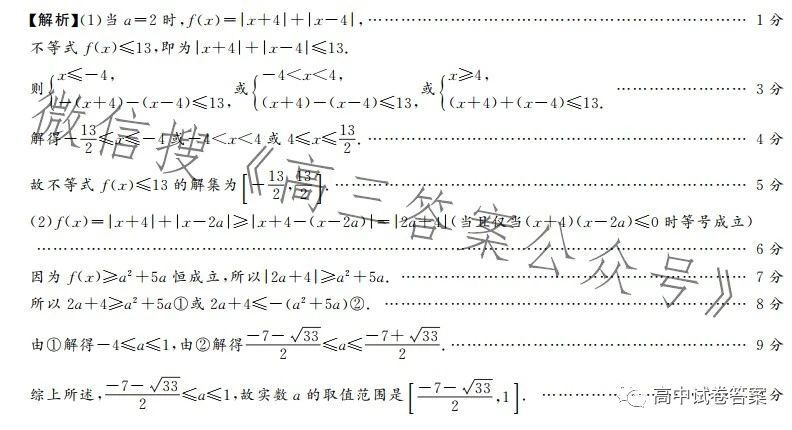 【解析】(1)当 a=2 时,f(x)=|x+4|+|x-4|,…… 1 分
不等式 f(x)≤13,即为|x+4|+|x-4|≤13.
则{x≤-4, -(x+4)-(x-4)≤13, 或{-4<x<4, (x+4)-(x-4)≤13, 或{x≥4, (x+4)+(x-4)≤13. …… 3 分
解得-13/2≤x≤-4 或-4<x<4 或 4≤x≤13/2. …… 4 分
故不等式 f(x)≤13 的解集为[-13/2,13/2] …… 5 分
(2)f(x)=|x+4|+|x-2a|≥|x+4-(x-2a)|=|2a+4|(当且仅当(x+4)(x-2a)≤0 时等号成立)
…… 6 分
因为 f(x)≥a²+5a 恒成立,所以|2a+4|≥a²+5a. …… 7 分
所以 2a+4≥a²+5a①或 2a+4≤-(a²+5a)②. …… 8 分
由①解得-4≤a≤1,由②解得(-7-√33)/2≤a≤(-7+√33)/2. …… 9 分
综上所述,(-7-√33)/2≤a≤1,故实数 a 的取值范围是[(-7-√33)/2,1]. …… 分
微信搜《高三答案公众号》
高中试卷答案